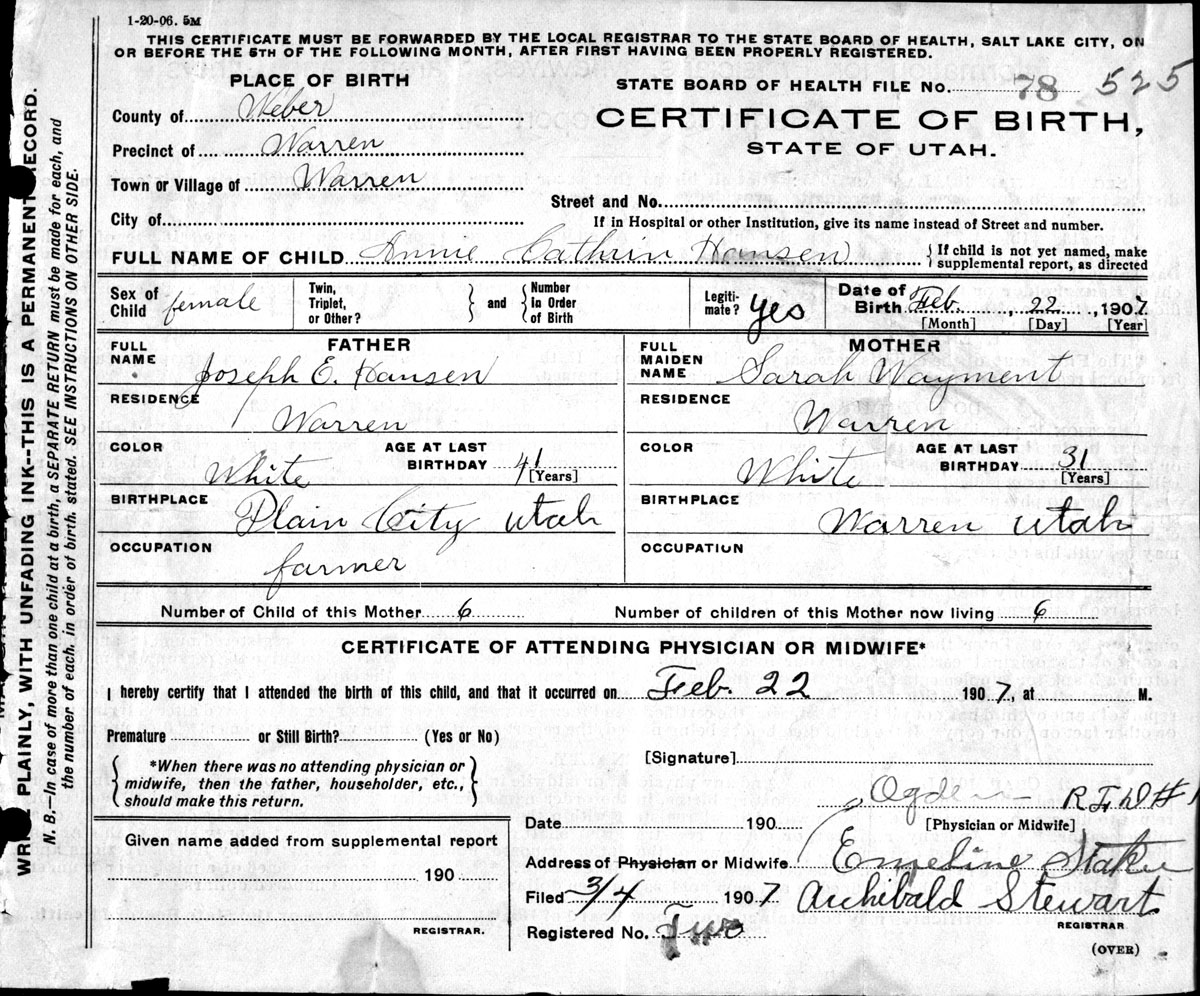 1-20-06. 5M
THIS CERTIFICATE MUST BE FORWARDED BY THE LOCAL REGISTRAR TO THE STATE BOARD OF HEALTH, SALT LAKE CITY, ON
OR BEFORE THE 5TH OF THE FOLLOWING MONTH, AFTER FIRST HAVING BEEN PROPERLY REGISTERED.
PLACE OF BIRTH
STATE BOARD OF HEALTH FILE No. 78 525
County of Weber
CERTIFICATE OF BIRTH,
Precinct of Warren
STATE OF UTAH.
Town or Village of Warren
Street and No.
City of
If in Hospital or other Institution, give its name instead of Street and number.
FULL NAME OF CHILD Annie Cathrin Hansen { If child is not yet named, make supplemental report, as directed
Sex of Child female
Twin, Triplet, or Other? } and { Number in Order of Birth
Legiti-mate? yes
Date of Birth Feb. 22, 1907
[Month] [Day] [Year]
FATHER
FULL NAME Joseph E. Hansen
RESIDENCE Warren
COLOR White
AGE AT LAST BIRTHDAY 41
[Years]
BIRTHPLACE Plain City Utah
OCCUPATION farmer
MOTHER
FULL MAIDEN NAME Sarah Wayment
RESIDENCE Warren
COLOR White
AGE AT LAST BIRTHDAY 31
[Years]
BIRTHPLACE Warren Utah
OCCUPATION
Number of Child of this Mother 6 Number of children of this Mother now living 6
CERTIFICATE OF ATTENDING PHYSICIAN OR MIDWIFE*
I hereby certify that I attended the birth of this child, and that it occurred on Feb. 22 1907, at M.
Premature or Still Birth? (Yes or No)
[Signature]
{ *When there was no attending physician or
midwife, then the father, householder, etc.,
should make this return. }
Ogden R F D #1
Date 190
[Physician or Midwife]
Given name added from supplemental report
190
REGISTRAR.
Address of Physician or Midwife Emeline Staker
Filed 3/4 1907 Archibald Stewart
REGISTRAR
Registered No. Two
(OVER)
PLAINLY, WITH UNFADING INK--THIS IS A PERMANENT RECORD.
N. B.—In case of more than one child at a birth, a SEPARATE RETURN must be made for each, and
the number of each, in order of birth, stated. SEE INSTRUCTIONS ON OTHER SIDE.